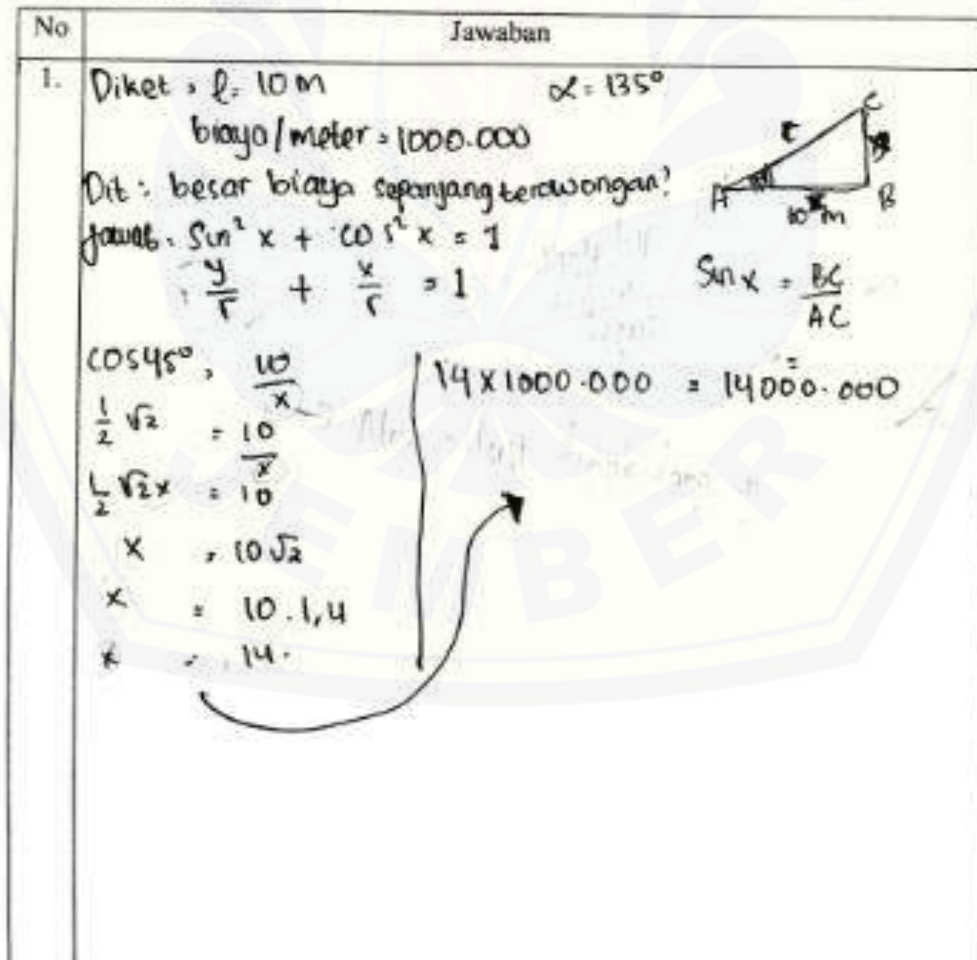 No Jawaban
1. Diket : l = 10 m α = 135°
biaya/meter = 1000.000
Dit : besar biaya sepanjang terowongan?
Jawab : Sin² x + cos² x = 1
y/r + x/r = 1
C
r
y
A 10 m B
Sin x = BC/AC
=
cos 45° = 10/x
½ √2 = 10/x
½ √2x = 10
x = 10√2
x = 10 . 1,4
x = 14.
14 x 1000.000 = 14000.000
JEMBER